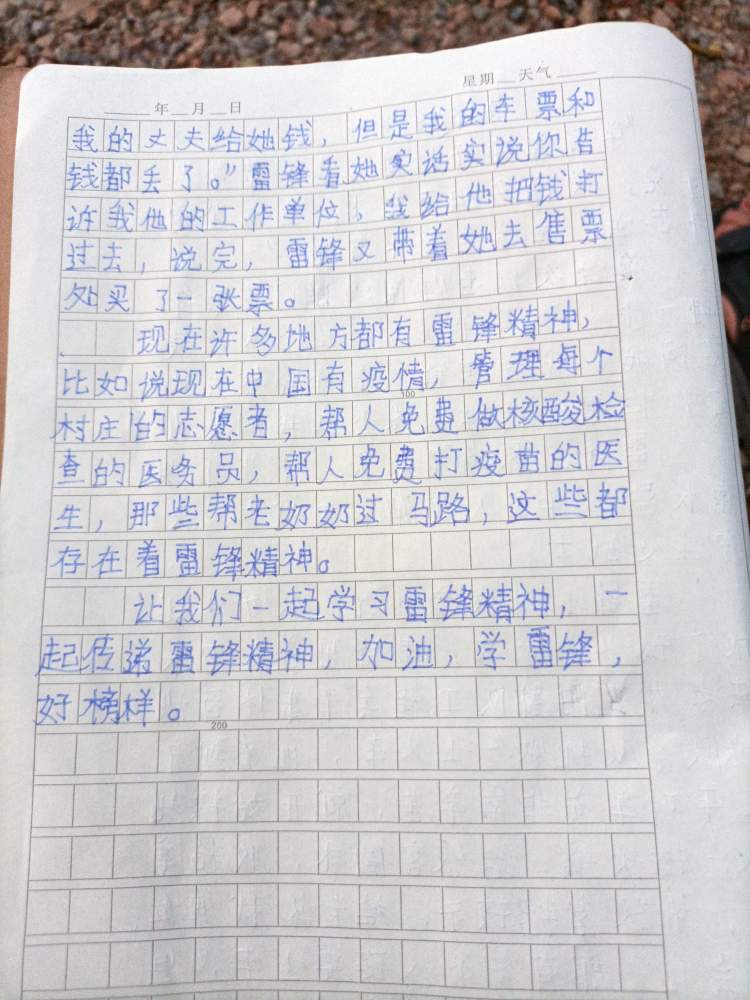 ____年__月__日 星期__天气____
我的丈夫给她钱，但是我的车票和
钱都丢了。”雷锋看她实话实说你告
诉我他的工作单位，我给他把钱打
过去，说完，雷锋又带着她去售票
处买了一张票。
现在许多地方都有雷锋精神，
比如说现在中国有疫情，管理每个
100
村庄的志愿者，帮人免费做核酸检
查的医务员，帮人免费打疫苗的医
生，那些帮老奶奶过马路，这些都
存在着雷锋精神。
让我们一起学习雷锋精神，一
起传递雷锋精神，加油，学雷锋，
好榜样。
200